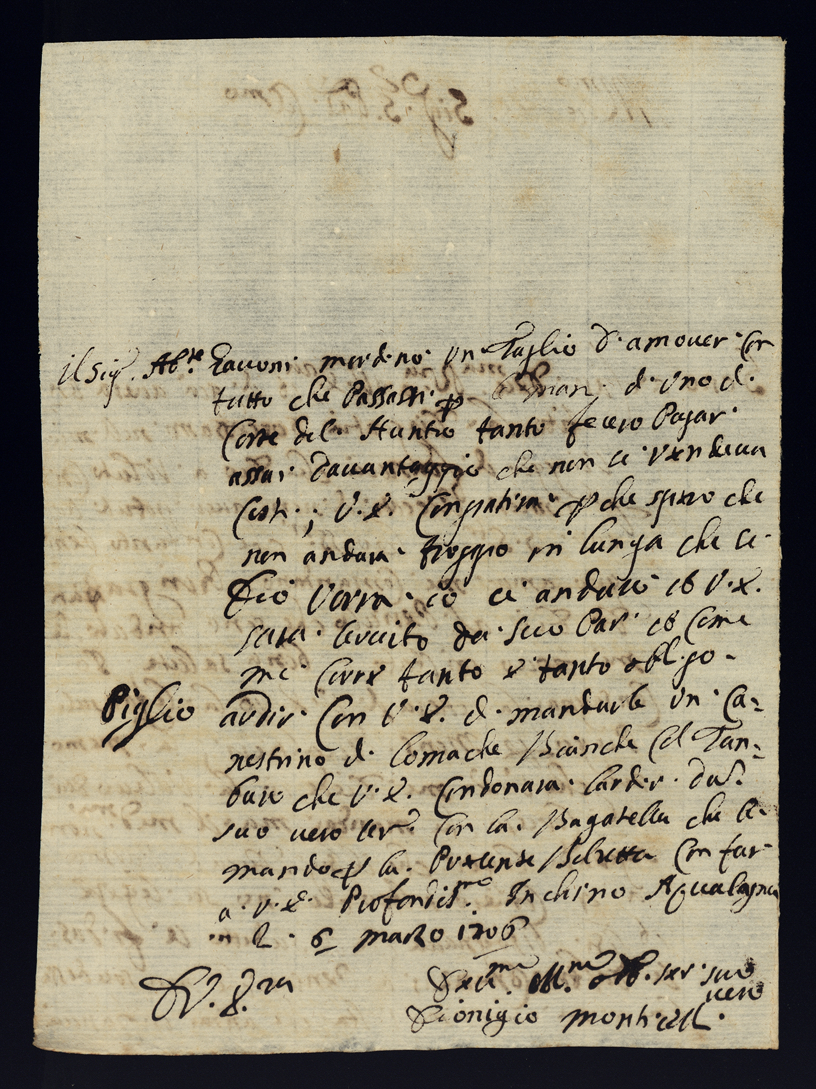 Il Sig.r Ab.te Zavoni mi ordino un Taglio d'amouer con
tutto che Passassi p d. uno d.
Corte del tanto fecero Pagar
assai davantaggio che non ci vendeva
Costi; V.E. Compatira p che spero che
non andara troppo in lunga che se
Dio Vorra io ci andaro et V.E.
sara servito da suo Par et come
me Corre tanto e tanto obligo
Piglio ardir Con V.E. di mandarle un Ca=
nestrino di lomache Bianche Col Tan=
buro che V.E. Condonara l'ardir dal
suo vero ser.r Con la Bagatella che le
mando p la Presente Con far
a V.E. Profondis.mo Inchino Aqualagna
li 6 marzo 1706
D. V. E.za
Dev.mo ser. suo
vero
Dionigio Monticelli